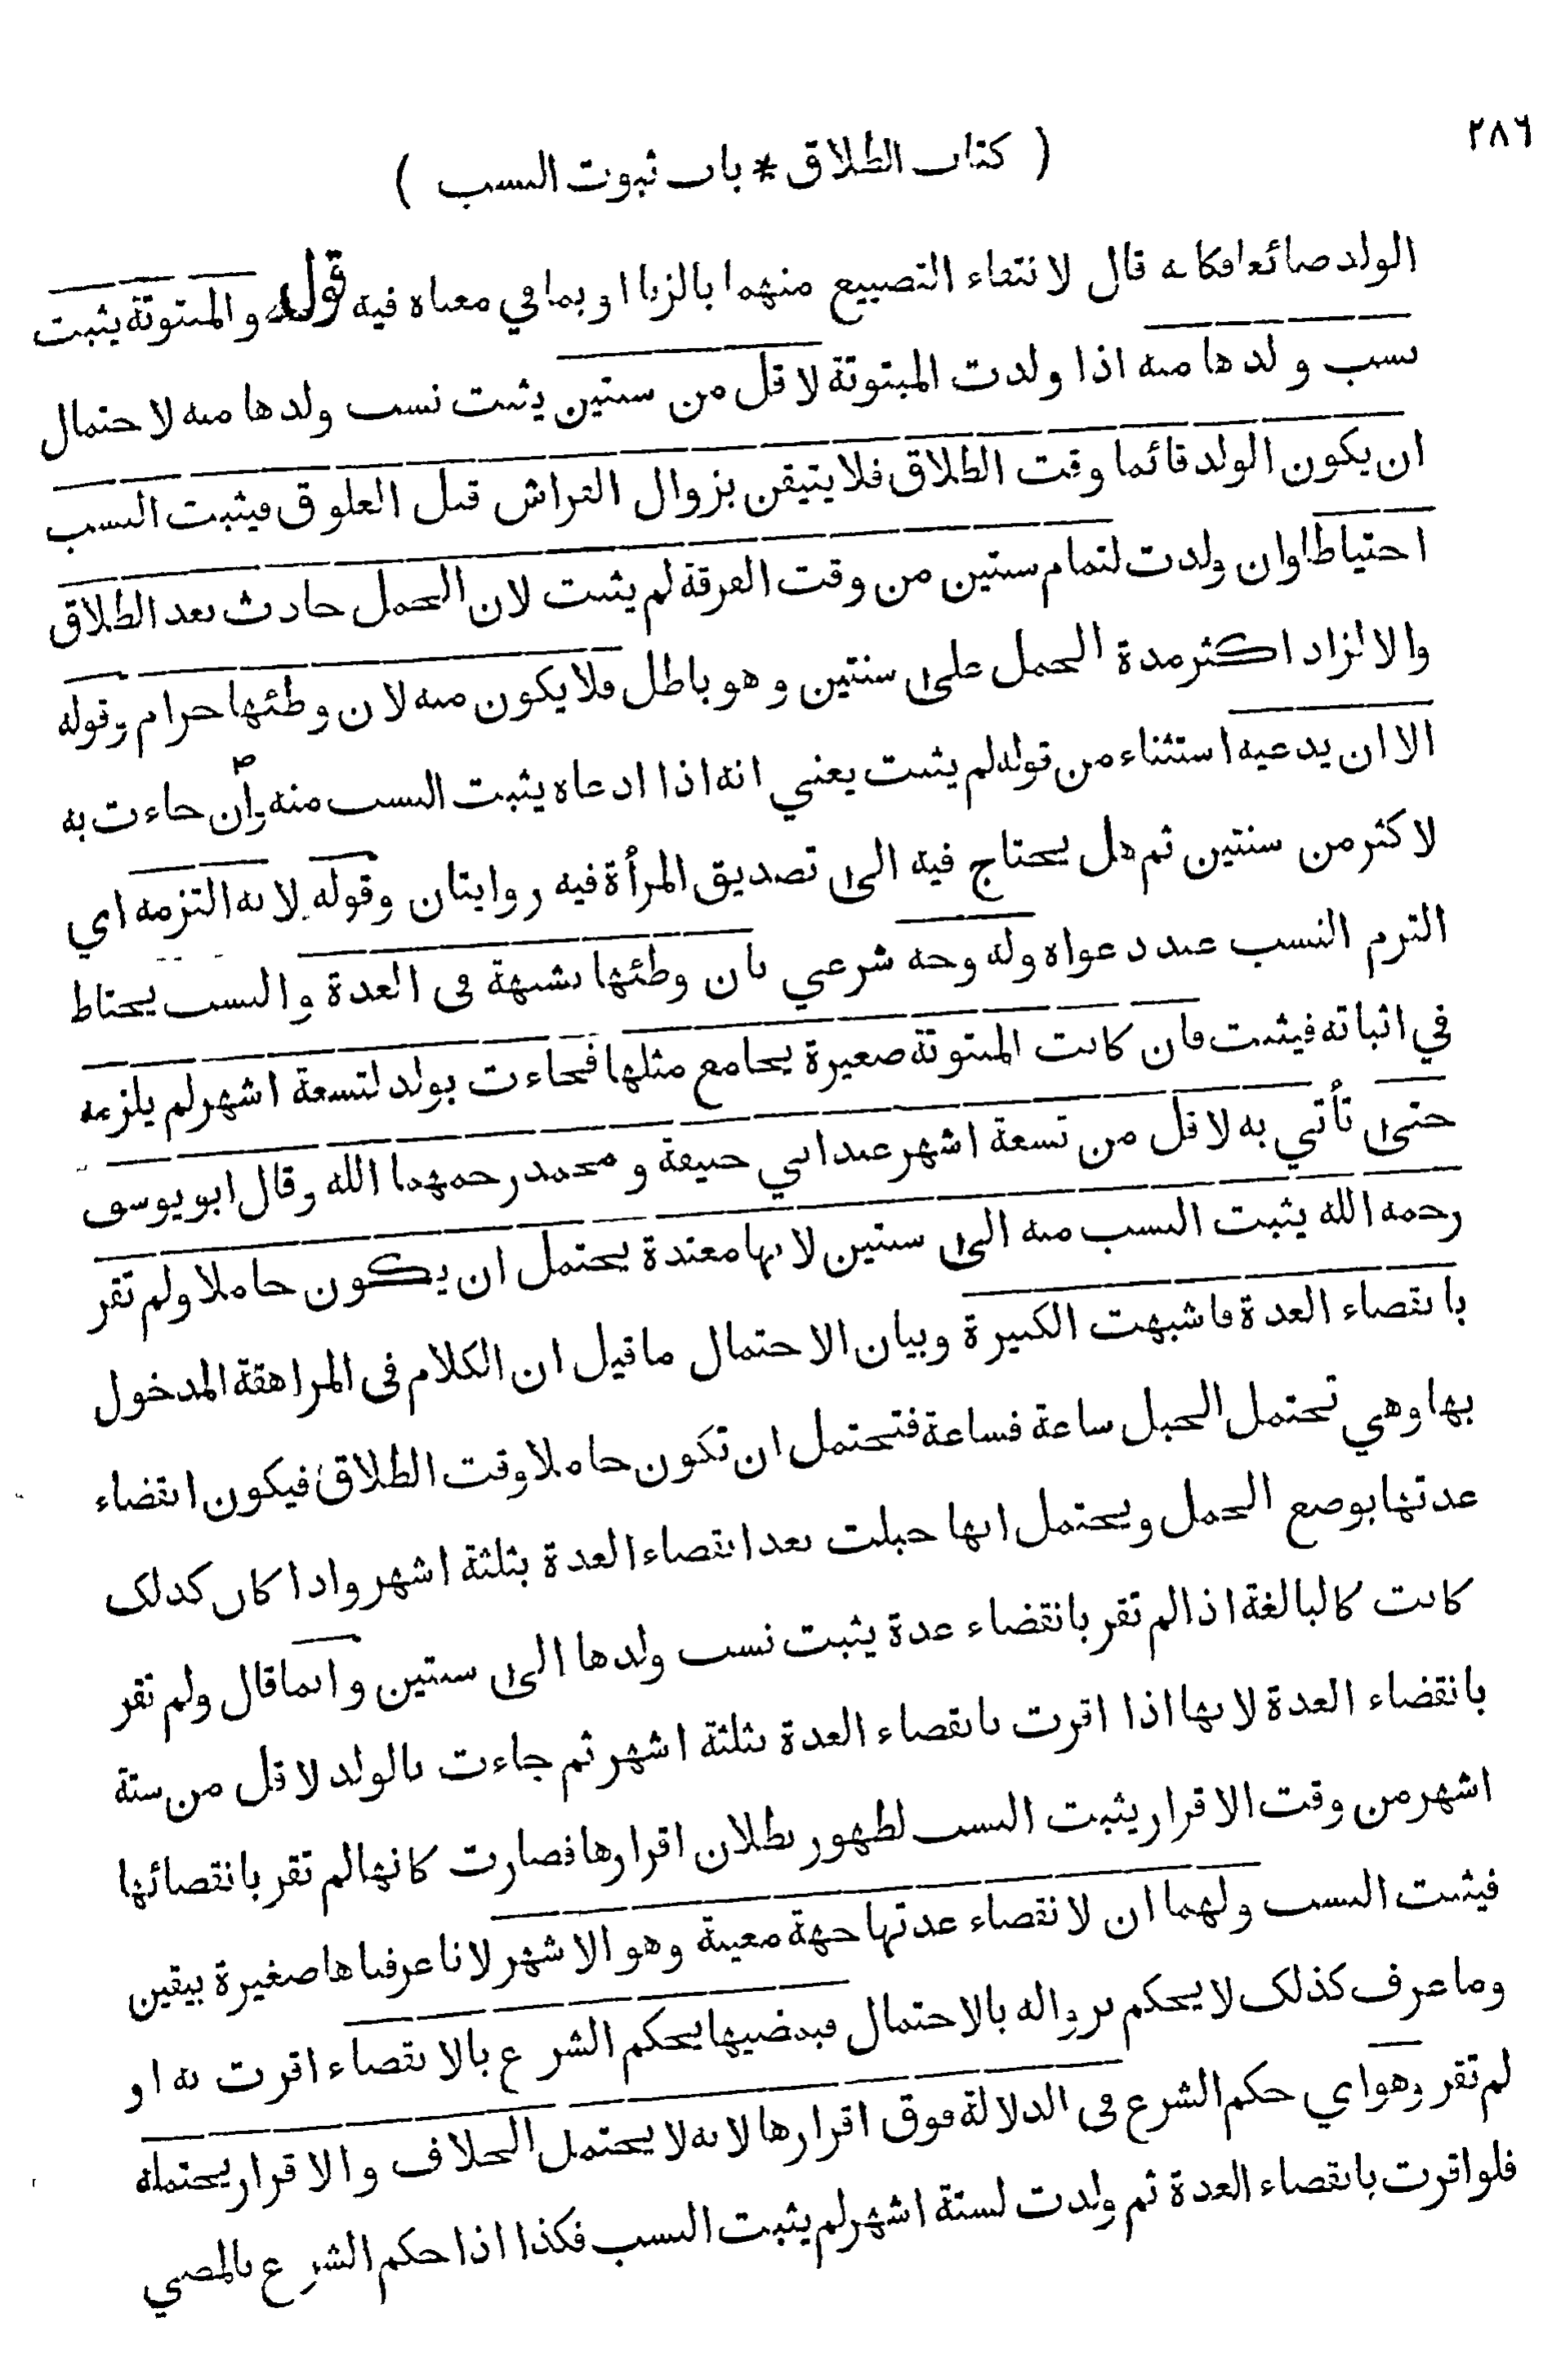 ٢٨٦
( كتاب الطلاق * باب ثبوت النسب )
الولد ضائعا فكانه قال لانتفاء التضييع منهما بالزنا او بما في معناه فيه قوله والمبتوتة يثبت
نسب ولدها منه اذا ولدت المبتوتة لاقل من سنتين يثبت نسب ولدها منه لاحتمال
ان يكون الولد قائما وقت الطلاق فلا يتيقن بزوال الفراش قبل العلوق فيثبت النسب
احتياطا وان ولدت لتمام سنتين من وقت الفرقة لم يثبت لان الحمل حادث بعد الطلاق
والا لزاد اكثر مدة الحمل على سنتين وهو باطل فلا يكون منه لان وطئها حرام وقوله
الا ان يدعيه استثناء من قوله لم يثبت يعني انه اذا ادعاه يثبت النسب منه وان جاءت به
لاكثر من سنتين ثم هل يحتاج فيه الى تصديق المرأة فيه روايتان وقوله لانه التزمه اي
التزم النسب عند دعواه وله وجه شرعي بان وطئها بشبهة في العدة والنسب يحتاط
في اثباته فيثبت فان كانت المبتوتة صغيرة يجامع مثلها فجاءت بولد لتسعة اشهر لم يلزمه
حتى تأتي به لاقل من تسعة اشهر عند ابي حنيفة ومحمد رحمهما الله وقال ابو يوسف
رحمه الله يثبت النسب منه الى سنتين لانها معتدة يحتمل ان يكون حاملا ولم تقر
بانقضاء العدة فاشبهت الكبيرة وبيان الاحتمال ما قيل ان الكلام في المراهقة المدخول
بها وهي تحتمل الحبل ساعة فساعة فتحتمل ان تكون حاملا وقت الطلاق فيكون انقضاء
عدتها بوضع الحمل ويحتمل انها حبلت بعد انقضاء العدة بثلثة اشهر واذا كان كذلك
كانت كالبالغة اذا لم تقر بانقضاء عدة يثبت نسب ولدها الى سنتين وانما قال ولم تقر
بانقضاء العدة لانها اذا اقرت بانقضاء العدة بثلثة اشهر ثم جاءت بالولد لاقل من ستة
اشهر من وقت الاقرار يثبت النسب لظهور بطلان اقرارها فصارت كانها لم تقر بانقضائها
فيثبت النسب ولهما ان لانقضاء عدتها جهة معينة وهو الاشهر لانا عرفناها صغيرة بيقين
وما عرف كذلك لا يحكم بزواله بالاحتمال فبمضيها يحكم الشرع بالانقضاء اقرت به او
لم تقر وهو اي حكم الشرع في الدلالة فوق اقرارها لانه لا يحتمل الخلاف والاقرار يحتمله
فلو اقرت بانقضاء العدة ثم ولدت لستة اشهر لم يثبت النسب فكذا اذا حكم الشرع بالمضي